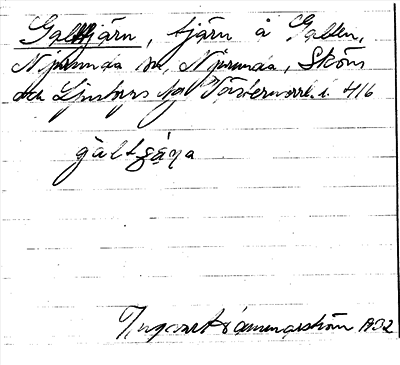 Galttjärn, tjärn å Galten,
Njurunda sn, Njurunda, Sköns
och Ljustorps tjl Västernorrl. l. 416
galtȥäṇa
Ingvar Hammarström 1932